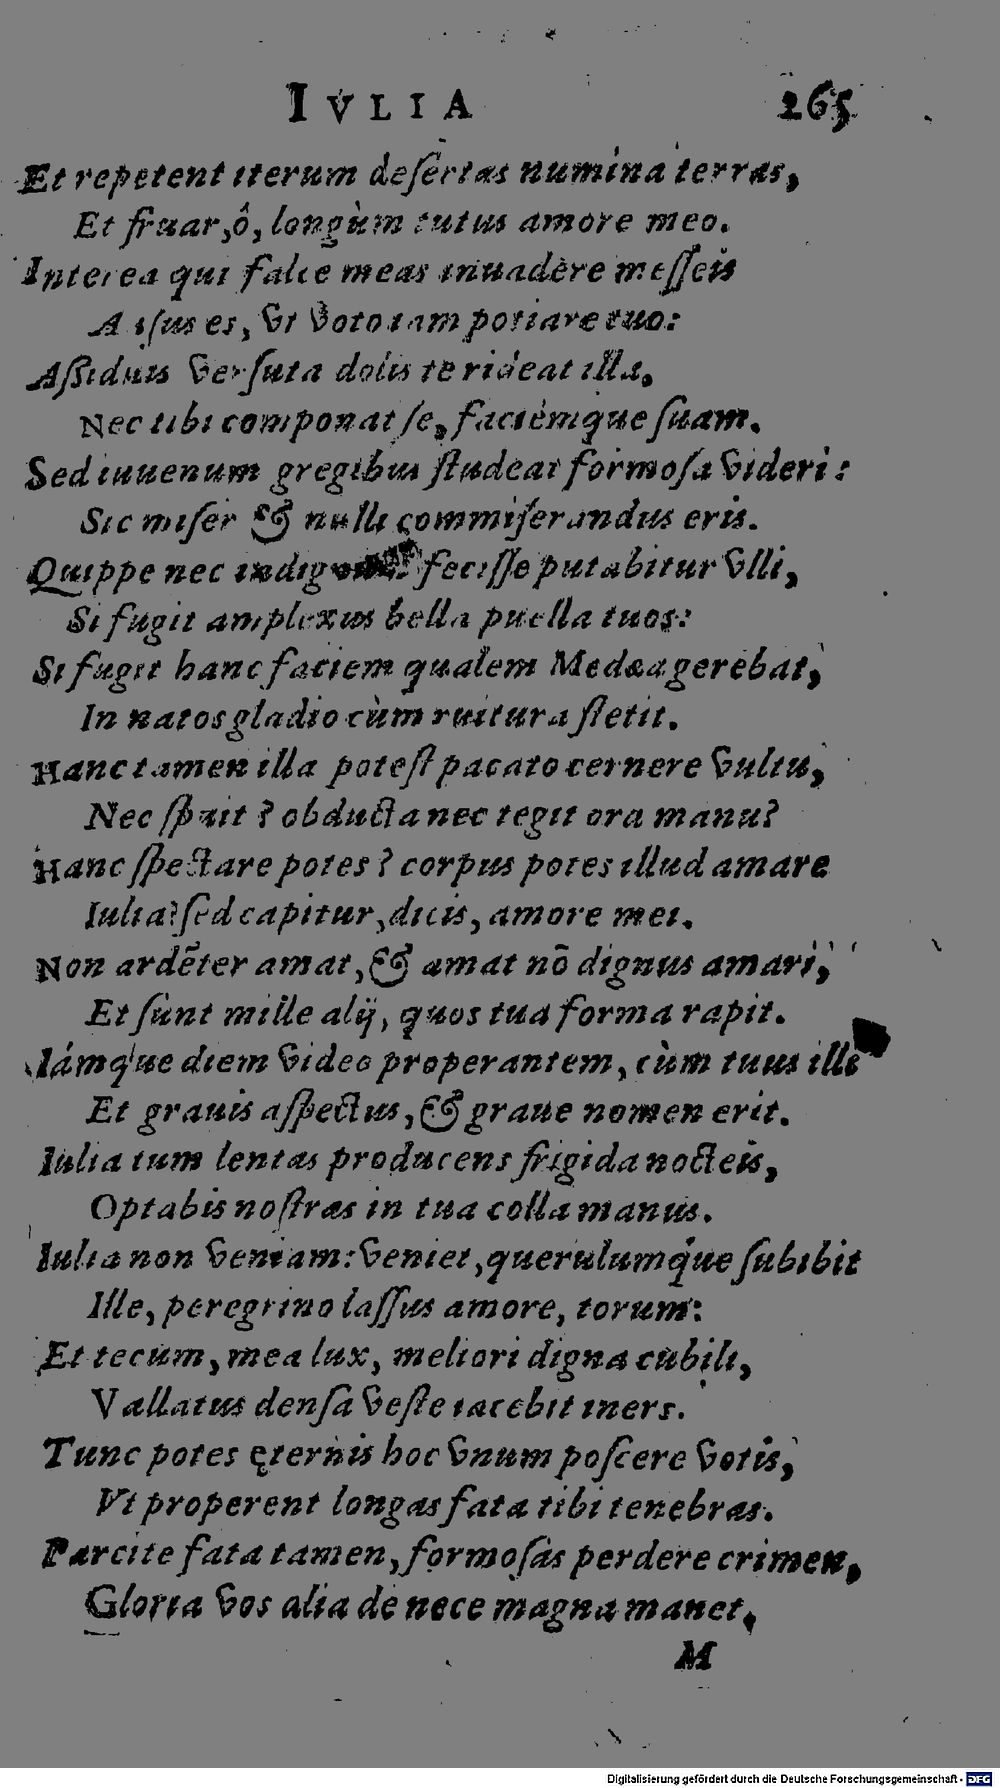 IVLIA 265
Et repetent iterum desertas numina terras,
Et fruar, ô, longùm tutus amore meo.
Interea qui falce meas inuadere messeis
Ausus es, vt voto iam potiare tuo:
Aßiduis versuta dolis te rideat illa,
Nec tibi componat se, faciémque suam.
Sed iuuenum gregibus studeat formosa videri:
Sic miser & nulli commiserandus eris.
Quippe nec fecisse putabitur vlli,
Si fugit amplexus bella puella tuos:
Si fugit hanc faciem qualem Medæa gerebat,
In natos gladio cùm ruitura stetit.
Hanc tamen illa potest pacato cernere vultu,
Nec spuit? obducta nec tegit ora manu?
Hanc spectare potes? corpus potes illud amare
Iulia? sed capitur, dicis, amore mei.
Non ardẽter amat, & amat nõ dignus amari,
Et sunt mille alij, quos tua forma rapit.
Iámque diem video properantem, cùm tuus ille
Et grauis aspectus, & graue nomen erit.
Iulia tum lentas producens frigida nocteis,
Optabis nostras in tua colla manus.
Iulia non veniam: veniet, querulumq́ue subibit
Ille, peregrino lassus amore, torum:
Et tecum, mea lux, meliori digna cubili,
Vallatus densa veste iacebit iners.
Tunc potes ęternis hoc vnum poscere votis,
Vt properent longas fata tibi tenebras.
Parcite fata tamen, formosas perdere crimen,
Gloria vos alia de nece magna manet,
M
Digitalisierung gefördert durch die Deutsche Forschungsgemeinschaft - DFG